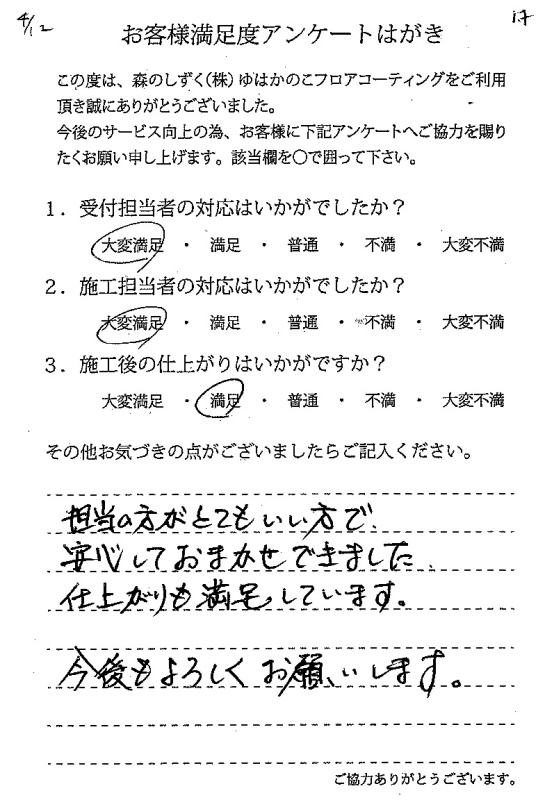 4/12
17
お客様満足度アンケートはがき
この度は、森のしずく(株)ゆはかのこフロアコーティングをご利用
頂き誠にありがとうございました。
今後のサービス向上の為、お客様に下記アンケートへご協力を賜り
たくお願い申し上げます。該当欄を〇で囲って下さい。
1．受付担当者の対応はいかがでしたか？
大変満足 ・ 満足 ・ 普通 ・ 不満 ・ 大変不満
2．施工担当者の対応はいかがでしたか？
大変満足 ・ 満足 ・ 普通 ・ 不満 ・ 大変不満
3．施工後の仕上がりはいかがですか？
大変満足 ・ 満足 ・ 普通 ・ 不満 ・ 大変不満
その他お気づきの点がございましたらご記入ください。
担当の方がとてもいい方で、
安心しておまかせできました。
仕上がりも満足しています。
今後もよろしくお願いします。
ご協力ありがとうございます。